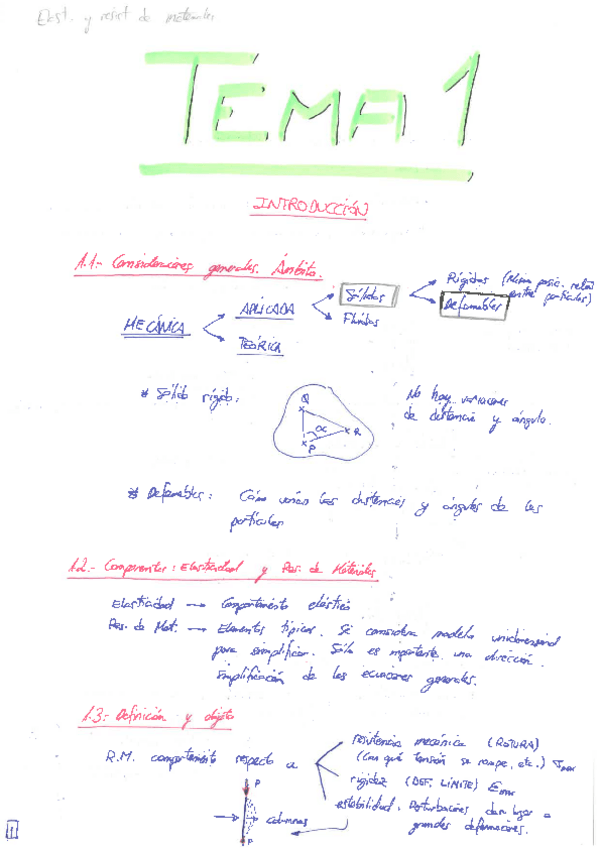 Elast. y resist de materiales
TEMA 1
INTRODUCCIÓN
1.1.- Consideraciones generales. Ámbito.
MECÁNICA
APLICADA
TEÓRICA
Sólidos
Fluidos
Rígidos (Misma posic. relat
entre partículas)
Deformables
* Sólido rígido:
Q
α
R
P
No hay variaciones
de distancia y ángulo.
* Deformables: Cómo varían las distancias y ángulos de las
partículas
1.2.- Componentes: Elasticidad y Res. de Materiales
Elasticidad → Comportamiento elástico
Res. de Mat. → Elementos típicos. Se considera modelo unidimensional
para simplificar. Sólo es importante una dirección.
Simplificación de las ecuaciones generales.
1.3.- Definición y objeto
R.M. comportamiento respecto a
resistencia mecánica (ROTURA)
(Con qué tensión se rompe, etc.)
rigidez (DEF. LÍMITE)
estabilidad. Perturbaciones dan lugar a
grandes deformaciones.
P
columnas
P
1